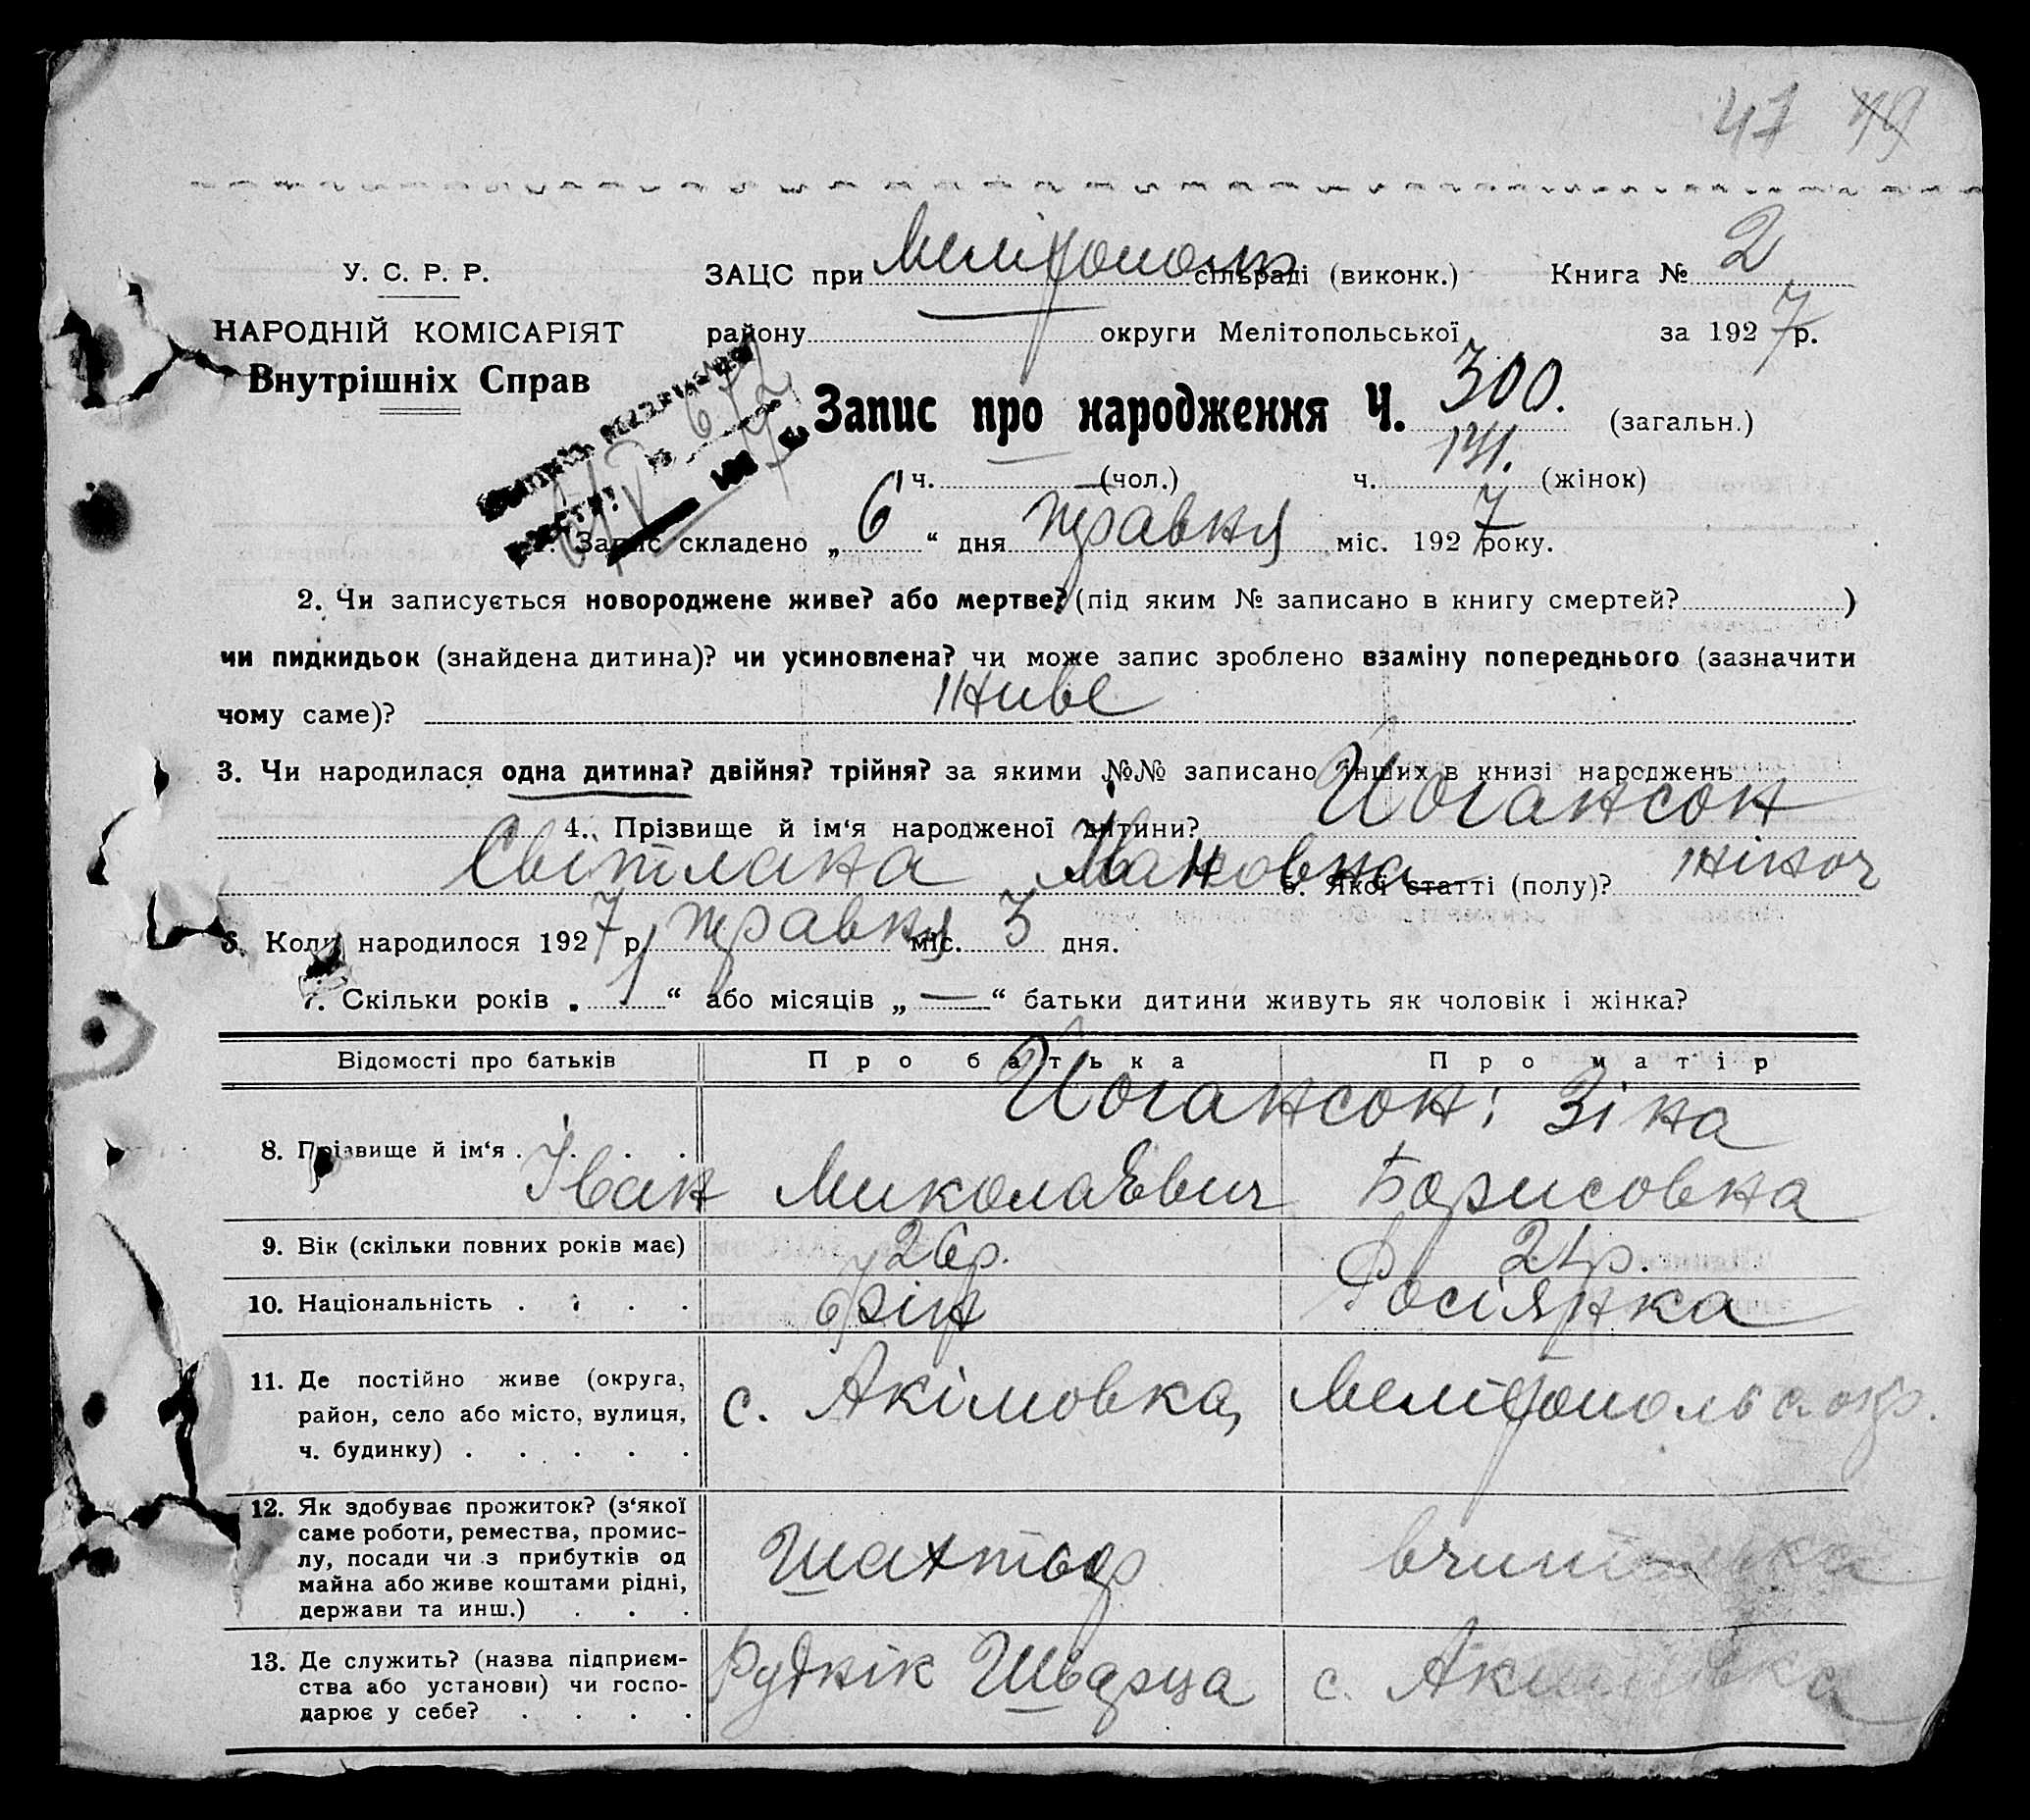 47 49
У. С. Р. Р.
НАРОДНІЙ КОМІСАРІЯТ
Внутрішніх Справ
ЗАЦС при Мелітополь сільраді (виконк.) Книга № 2
району округи Мелітопольської за 1927 р.
Запис про народження Ч. 300. (загальн.)
ч. (чол.) ч. 131. (жінок)
1. Запис складено „ 6 “ дня травня міс. 1927 року.
2. Чи записується новороджене живе? або мертве? (під яким № записано в книгу смертей? )
чи пидкидьок (знайдена дитина)? чи усиновлена? чи може запис зроблено взаміну попереднього (зазначити
чому саме)? живе
3. Чи народилася одна дитина? двійня? трійня? за якими №№ записано інших в книзі народжень
4. Прізвище й ім‘я народженої дитини? Йогансон
Світлана Івановна 5. Якої статті (полу)? жіноч
6. Коли народилося 1927 р. травня міс. 3 дня.
7. Скільки років „ 1 “ або місяців „ — “ батьки дитини живуть як чоловік і жінка?
Відомості про батьків Про батька Про матір
Йогансон: Зіна
8. Прізвище й ім‘я . . . . Іван МиколаЄвич Борисовна
9. Вік (скільки повних років має) 26р. 21р.
10. Національність . . . . Фін Росіянка
11. Де постійно живе (округа,
район, село або місто, вулиця,
ч. будинку) . . . . . с. Акімовка, Мелітопольс. окр.
12. Як здобуває прожиток? (з‘якої
саме роботи, ремества, промис-
лу, посади чи з прибутків од
майна або живе коштами рідні,
держави та инш.) . . . Шахтьор вчителька
13. Де служить? (назва підприєм-
ства або установи) чи госпо-
дарює у себе? . . . . Руднік Шварца с. Акимовка